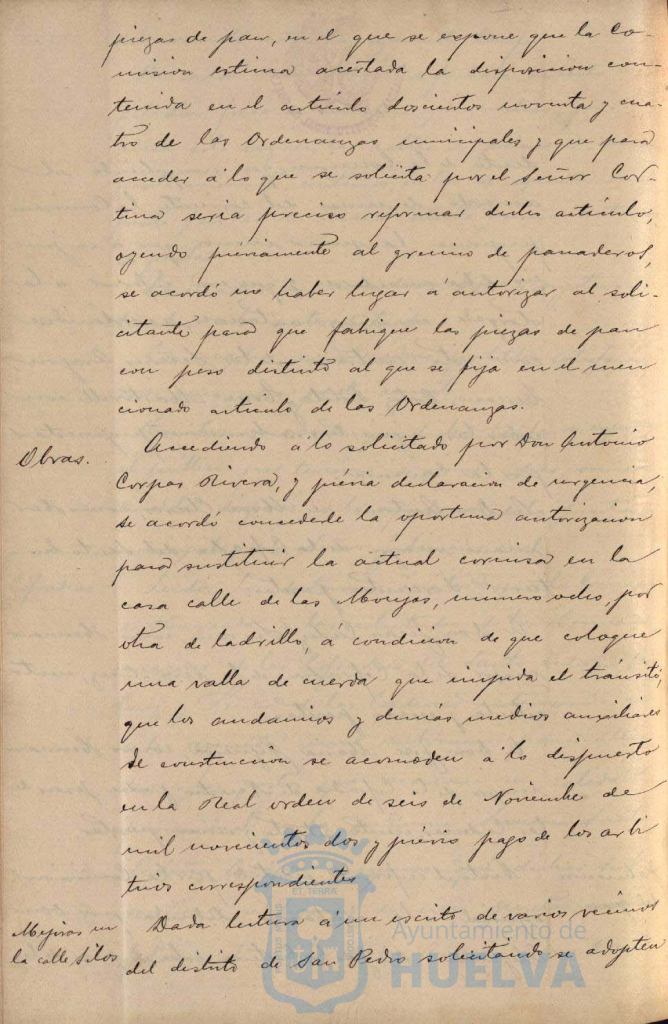 piezas de pan, en el que se expone que la Co-
mision estima acertada la disposicion con-
tenida en el artículo doscientos noventa y cua-
tro de las Ordenanzas municipales y que para
acceder á lo que se solicita por el Señor Cor-
tina seria preciso reformar dicho artículo,
oyendo préviamente al gremio de panaderos,
se acordó no haber lugar á autorizar al soli-
citante para que fabrique las piezas de pan
con peso distinto al que se fija en el men-
cionado artículo de las Ordenanzas.
Obras.
Accediendo á lo solicitado por Don Antonio
Corpas Rivera, y prévia declaracion de urgencia,
se acordó concederle la oportuna autorizacion
para sustituir la actual cornisa en la
casa calle de las Monjas, número ocho, por
otra de ladrillo, á condicion de que coloque
una valla de cuerda que impida el tránsito,
que los andamios y demás medios auxiliares
de construcción se acomoden á lo dispuesto
en la Real orden de seis de Noviembre de
mil novecientos dos y prévio pago de los arbi
trios correspondientes
Mejoras en
la calle Silos
Dada lectura á un escrito de varios vecinos
del distrito de San Pedro solicitando se adopten
Ayuntamiento de
HUELVA